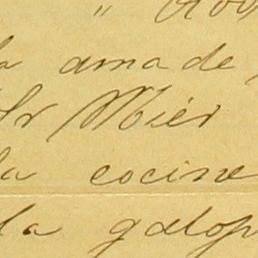 "
a ama de
Sr Mier
la cocine
la galop